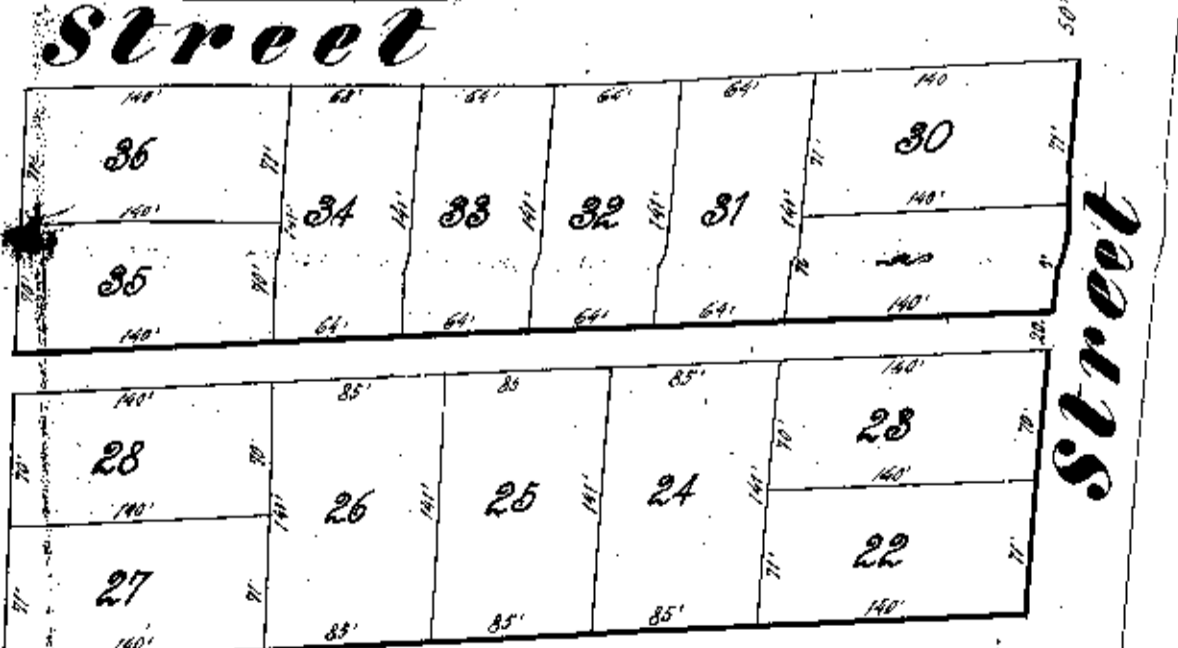 Street
50'
140' 68' 64' 64' 64' 140
36 71' 71' 30 71'
71'
140' 140'
34 141' 33 141' 32 141' 31 141'
141'
35 70' 70'
140' 64' 64' 64' 64' 140'
20'
Street
140' 85' 85 85' 140'
28 70' 70' 23 70' 70'
140' 140'
26 141' 25 141' 24 141'
141'
27 71' 71' 22 71' 71'
140' 85' 85' 85' 140'